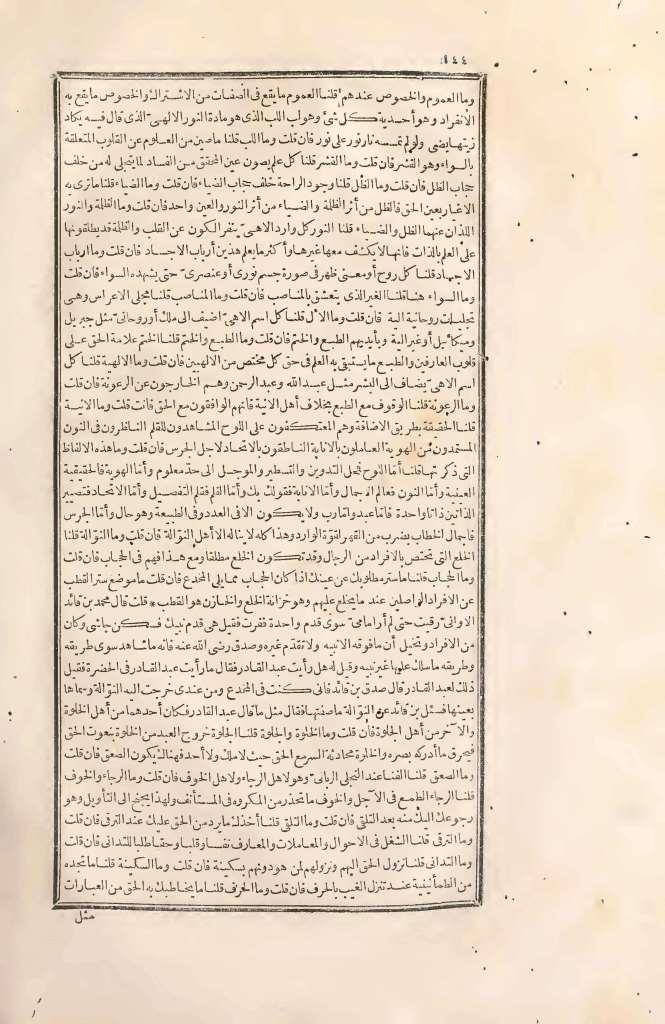 ١٤٤
وما العموم والخصوص عندهم قلنا العموم ما يقع فى الصفات من الاشتراك والخصوص ما يقع به
الانفراد وهو أحدية كل شئ وهو لب اللب الذى هو مادة النور الالهى الذى قال فيه يكاد
زيتها يضىء ولو لم تمسسه نار نور على نور فان قلت وما اللب قلنا ما صين من العلوم عن القلوب المتعلقة
بالسواء وهو القشر فان قلت وما القشر قلنا كل علم يصون عين المحقق من الفساد لما يتجلى له من خلف
حجاب الظل فان قلت وما الظل قلنا وجود الراحة خلف حجاب الضياء فان قلت وما الضياء قلنا ما ترى به
الاغيار بعين الحق فالظل من أثر الظلمة والضياء من أثر النور والعين واحد فان قلت وما الظلمة والنور
اللذان عنهما الظل والضياء قلنا النور كل وارد الاهى ينفر الكون عن القلب والظلمة قد يطلقونها
على العلم بالذات فانها لا يكشف معها غيرها وأكثر ما يعلم هذين أرباب الاجساد فان قلت وما ارباب
الاجساد قلنا كل روح أو معنى ظهر فى صورة جسم نورى أو عنصرى حتى يشهده السواء فان قلت
وما السواء هنا قلنا الغير الذى يتعشق بالمناصب فان قلت وما المناصب قلنا مجلى الاعراس وهى
تجليات روحانية الية فان قلت وما الال قلنا كل اسم الاهى اضيف الى ملك أو روحانى مثل جبريل
وميكائيل أو غير الية وبأيديهم الطبع والختم فان قلت وما الطبع والختم قلنا الختم علامة الحق على
قلوب العارفين والطبع ما يستبق به العلم فى حق كل مختص من الالهيين فان قلت وما الالهية قلنا كل
اسم الاهى يضاف الى البشر مثل عبد الله وعبد الرحمن وهم الخارجون عن الرعونة فان قلت
وما الرعونة قلنا الوقوف مع الطبع بخلاف أهل الانية فانهم الواقفون مع الحق فانت قلت وما الانية
قلنا الحقيقة بطريق الاضافة وهم المعتكفون على اللوح المشاهدون للقلم الناظرون فى النون
المستمدون من الهوية العاملون بالانابة الناطقون بالاتحاد لاجل الجرس فان قلت وما هذه الالفاظ
التى ذكرتها قلنا أما اللوح فمحل التدوين والتسطير والموجل الى حد معلوم وأما الهوية فالحقيقية
العينية وأما النون فعالم الاجمال وأما الانابة فقولك بك وأما القلم فقلم التفصيل وأما الاتحاد فتصير
الذاتين ذاتا واحدة فاما عبد واما رب ولا يكون الا فى العدد وفى الطبيعة وهو حال وأما الجرس
فاجمال الخطاب بضرب من القهر لقوة الوارد وهذا كله لا يناله الا أهل النوالة فان قلت وما النوالة قلنا
الخلع التى تختص بالافراد من الرجال وقد تكون الخلع مطلقا ومع هذا فهم فى الحجاب فان قلت
وما الحجاب قلنا ما ستر مطلوبك عن عينك اذا كان الحجاب مما يلى المخدع فان قلت ما موضع ستر القطب
عن الافراد الواصلين عند ما يخلع عليهم وهو خزانة الخلع والخازن هو القطب * قلت قال محمد بن قائد
الاوانى رقيت حتى لم أر امامى سوى قدم واحدة فغرت فقيل هى قدم نبيك فسكن جاشى وكان
من الافراد وتخيل أن ما فوقه الا نبيه ولا تقدم غيره وصدق رضى الله عنه فانه ما شاهد سوى طريقه
وطريقه ما سلك عليها غير نبيه وقيل له هل رأيت عبد القادر فقال ما رأيت عبد القادر فى الحضرة فقيل
ذلك لعبد القادر قال صدق بن قائد فانى كنت فى المخدع ومن عندى خرجت اليه النوالة وسماها
بعينها فسئل بن قائد عن النوالة ما صفتها فقال مثل ما قال عبد القادر فكان أحدهما من أهل الخلوة
والآخر من أهل الجلوة فان قلت وما الخلوة والجلوة قلنا الجلوة خروج العبد من الخلوة بنعوت الحق
فيحرق ما أدركه بصره والخلوة محادثة السر مع الحق حيث لا ملك ولا أحد فهناك يكون الصعق فان قلت
وما الصعق قلنا الفناء عند التجلى الربانى وهو لاهل الرجاء ولاهل الخوف فان قلت وما الرجاء والخوف
قلنا الرجاء الطمع فى الآجل والخوف ما تحذر من المكروه فى المستأنف ولهذا يجنح الى التأويل وهو
رجوعك اليك منه بعد التلقى فان قلت وما التلقى قلنا أخذك ما يرد من الحق عليك عند الترقى فان قلت
وما الترقى قلنا التنقل فى الاحوال والمعاملات والمعارف نفسا وقلبا وحقا طلبا للتدانى فان قلت
وما التدانى قلنا نزول الحق اليهم ونزولهم لمن هو دونهم بسكينة فان قلت وما السكينة قلنا ما تجده
من الطمأنينة عند تنزل الغيب بالحرف فان قلت وما الحرف قلنا ما يخاطبك به الحق من العبارات
مثل